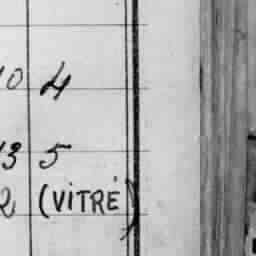 10 4
13 5
2 (VITRÉ)